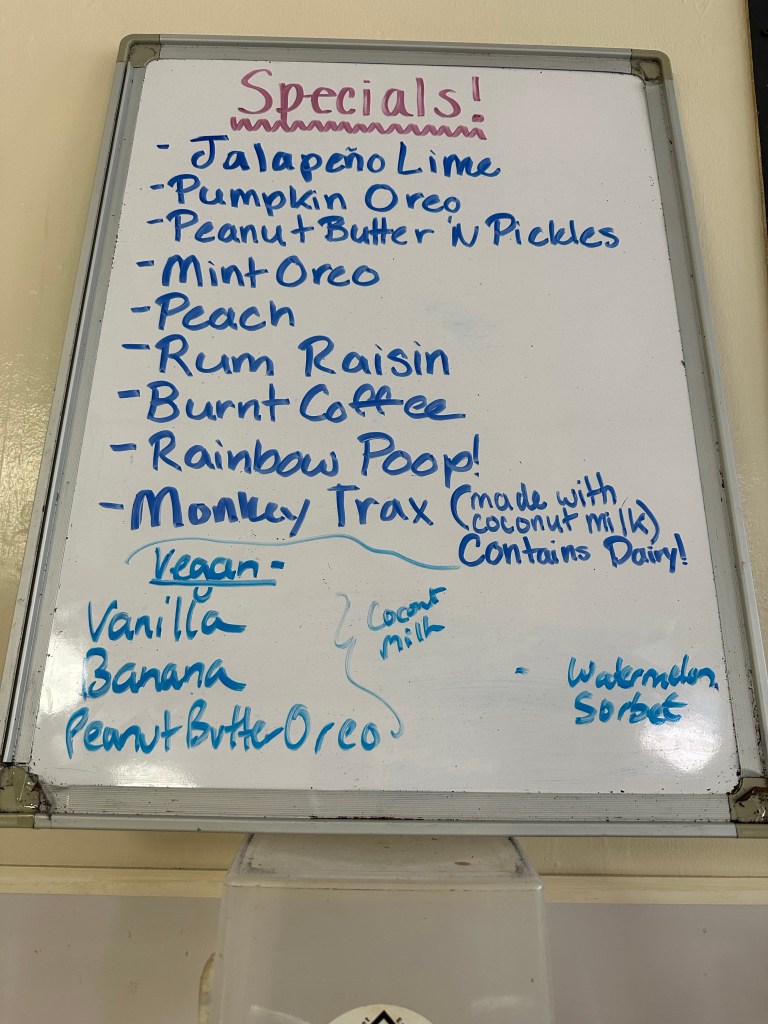 Specials!
- Jalapeño Lime
- Pumpkin Oreo
- Peanut Butter 'N Pickles
- Mint Oreo
- Peach
- Rum Raisin
- Burnt Coffee
- Rainbow Poop!
- Monkey Trax (made with
coconut milk)
Contains Dairy!
Vegan -
Vanilla
Banana
Peanut Butter Oreo
Coconut
Milk
- Watermelon
Sorbet